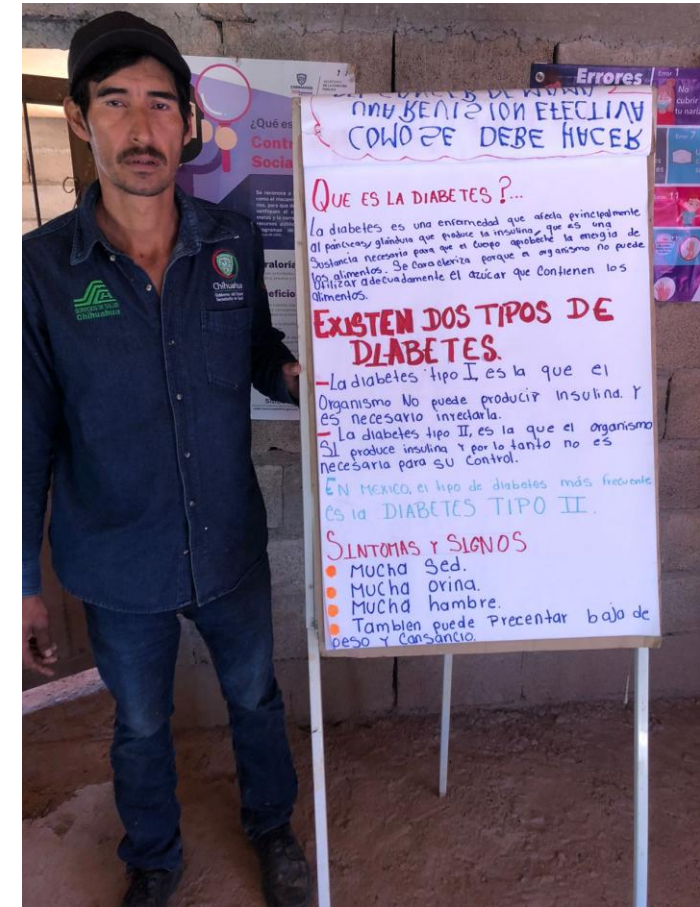 COMO SE DEBE HACER
UNA REVISION EFECTIVA
QUE ES LA DIABETES ?...
La diabetes es una enfermedad que afecta principalmente
al páncreas y glándula que produce la insulina, que es una
Sustancia necesario para que el cuerpo aproveche la energía de
los alimentos. Se caracteriza porque el organismo no puede
utilizar adecuadamente el azúcar que contienen los
alimentos.
EXISTEN DOS TIPOS DE
DIABETES.
- La diabetes tipo I, es la que el
Organismo No puede producir Insulina. Y
es necesario inyectarla.
- La diabetes tipo II, es la que el organismo
SI produce insulina y por lo tanto no es
necesaria para su control.
EN MEXICO, el tipo de diabetes más frecuente
es la DIABETES TIPO II.
SINTOMAS Y SIGNOS
Mucha Sed.
Mucha orina.
Mucha hambre.
Tambien puede Precentar baja de
peso y Cansancio.
SERVICIOS DE SALUD
Chihuahua
Chihuahua
¿Qué es
Contr
Social
Errores
Error 1
No
cubrir
tu nariz